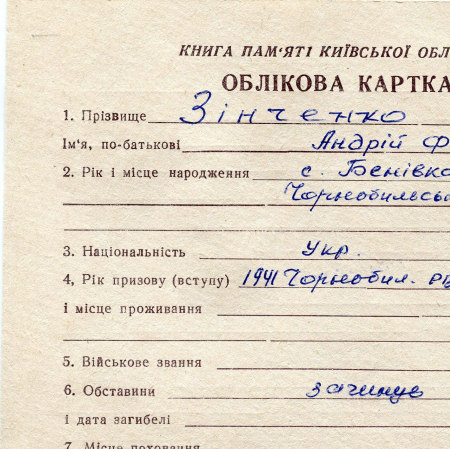 КНИГА ПАМ'ЯТІ КИЇВСЬКОЇ ОБЛ
ОБЛІКОВА КАРТКА
1. Прізвище Зінченко
Ім'я, по-батькові Андрій Ф
2. Рік і місце народження с. Бенівка
Чорнобильсь
3. Національність Укр.
4, Рік призову (вступу) 1941 Чорнобил. РВ
і місце проживання
5. Військове звання
6. Обставини зачинув
і дата загибелі
7. Місце поховання